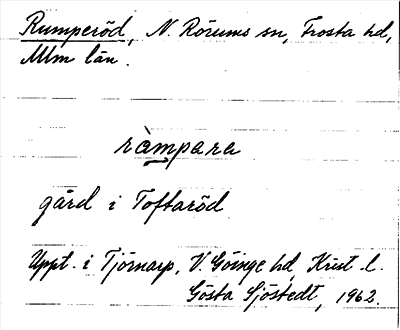 Rumperöd, N. Rörums sn, Frosta hd,
Mlm län.
ràmpara
gård i Toftaröd
Uppt. i Tjörnarp, V. Göinge hd, Krist. l.
Gösta Sjöstedt, 1962.